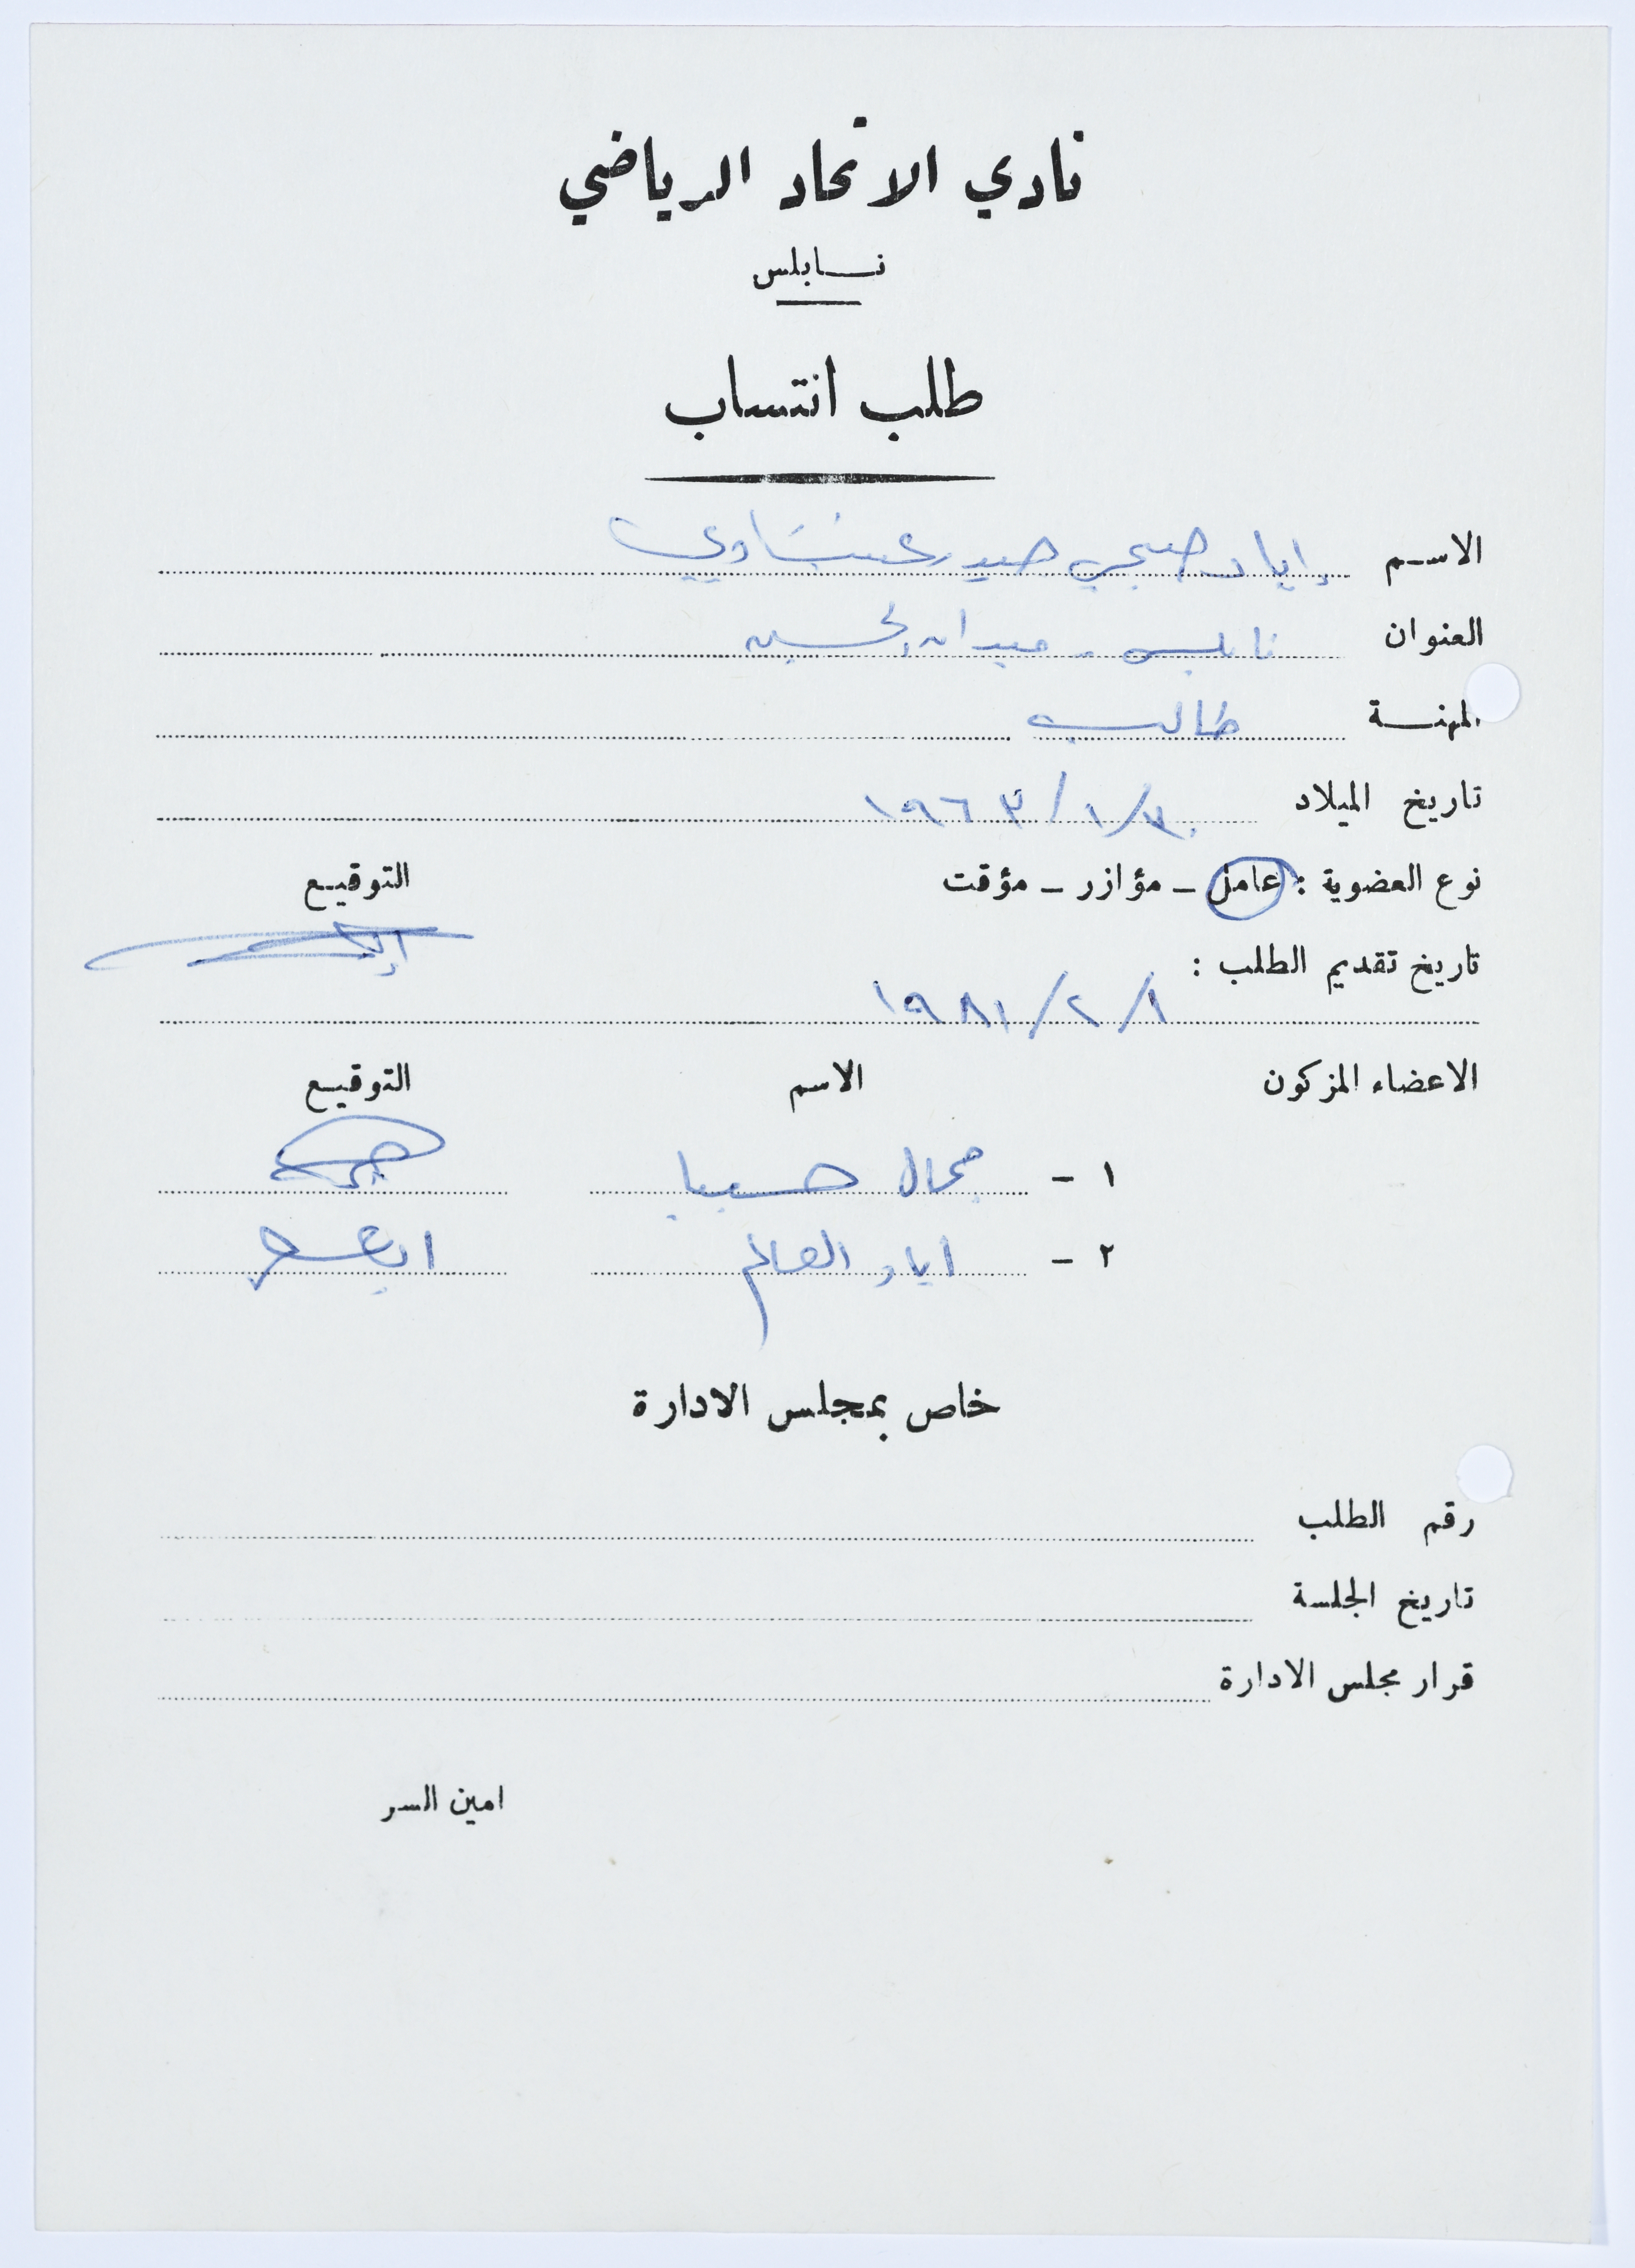 نادي الاتحاد الرياضي
نابلس
طلب انتساب
الاسم إياد صبحي حيدر عنبتاوي
العنوان نابلس - ميدان الحسين
المهنة طالب
تاريخ الميلاد ٣٠/١/١٩٦٣
نوع العضوية : عامل - مؤازر - مؤقت التوقيع
تاريخ تقديم الطلب :
٨/٢/١٩٨١
الاعضاء المزكون الاسم التوقيع
١ - جمال حسيبا
٢ - اياد العالم
خاص بمجلس الادارة
رقم الطلب
تاريخ الجلسة
قرار مجلس الادارة
امين السر